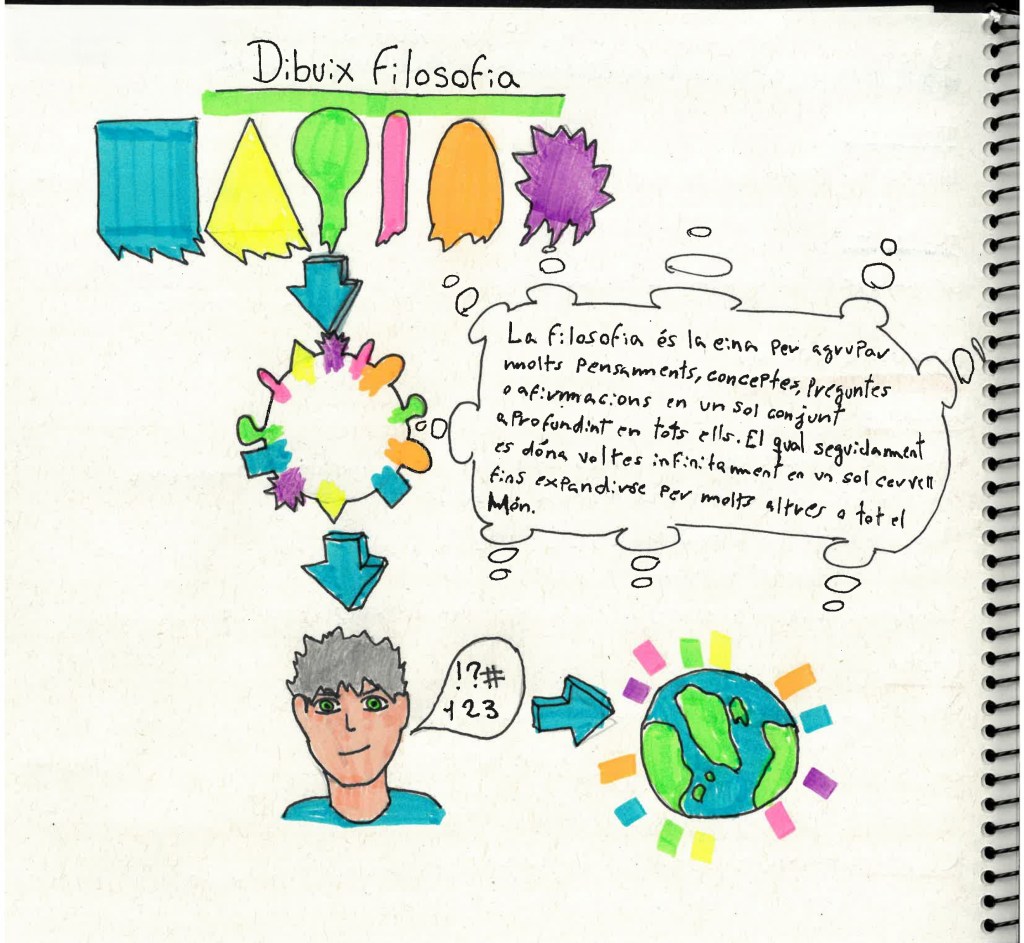 Dibuix Filosofia
La filosofia és la eina per agrupar
molts pensamments, conceptes, preguntes
o afirmacions en un sol conjunt
aprofundint en tots ells. El qual seguidamment
es dóna voltes infinitamment en un sol cervell
fins expandirse per molts altres o tot el
Món.
!?#
123